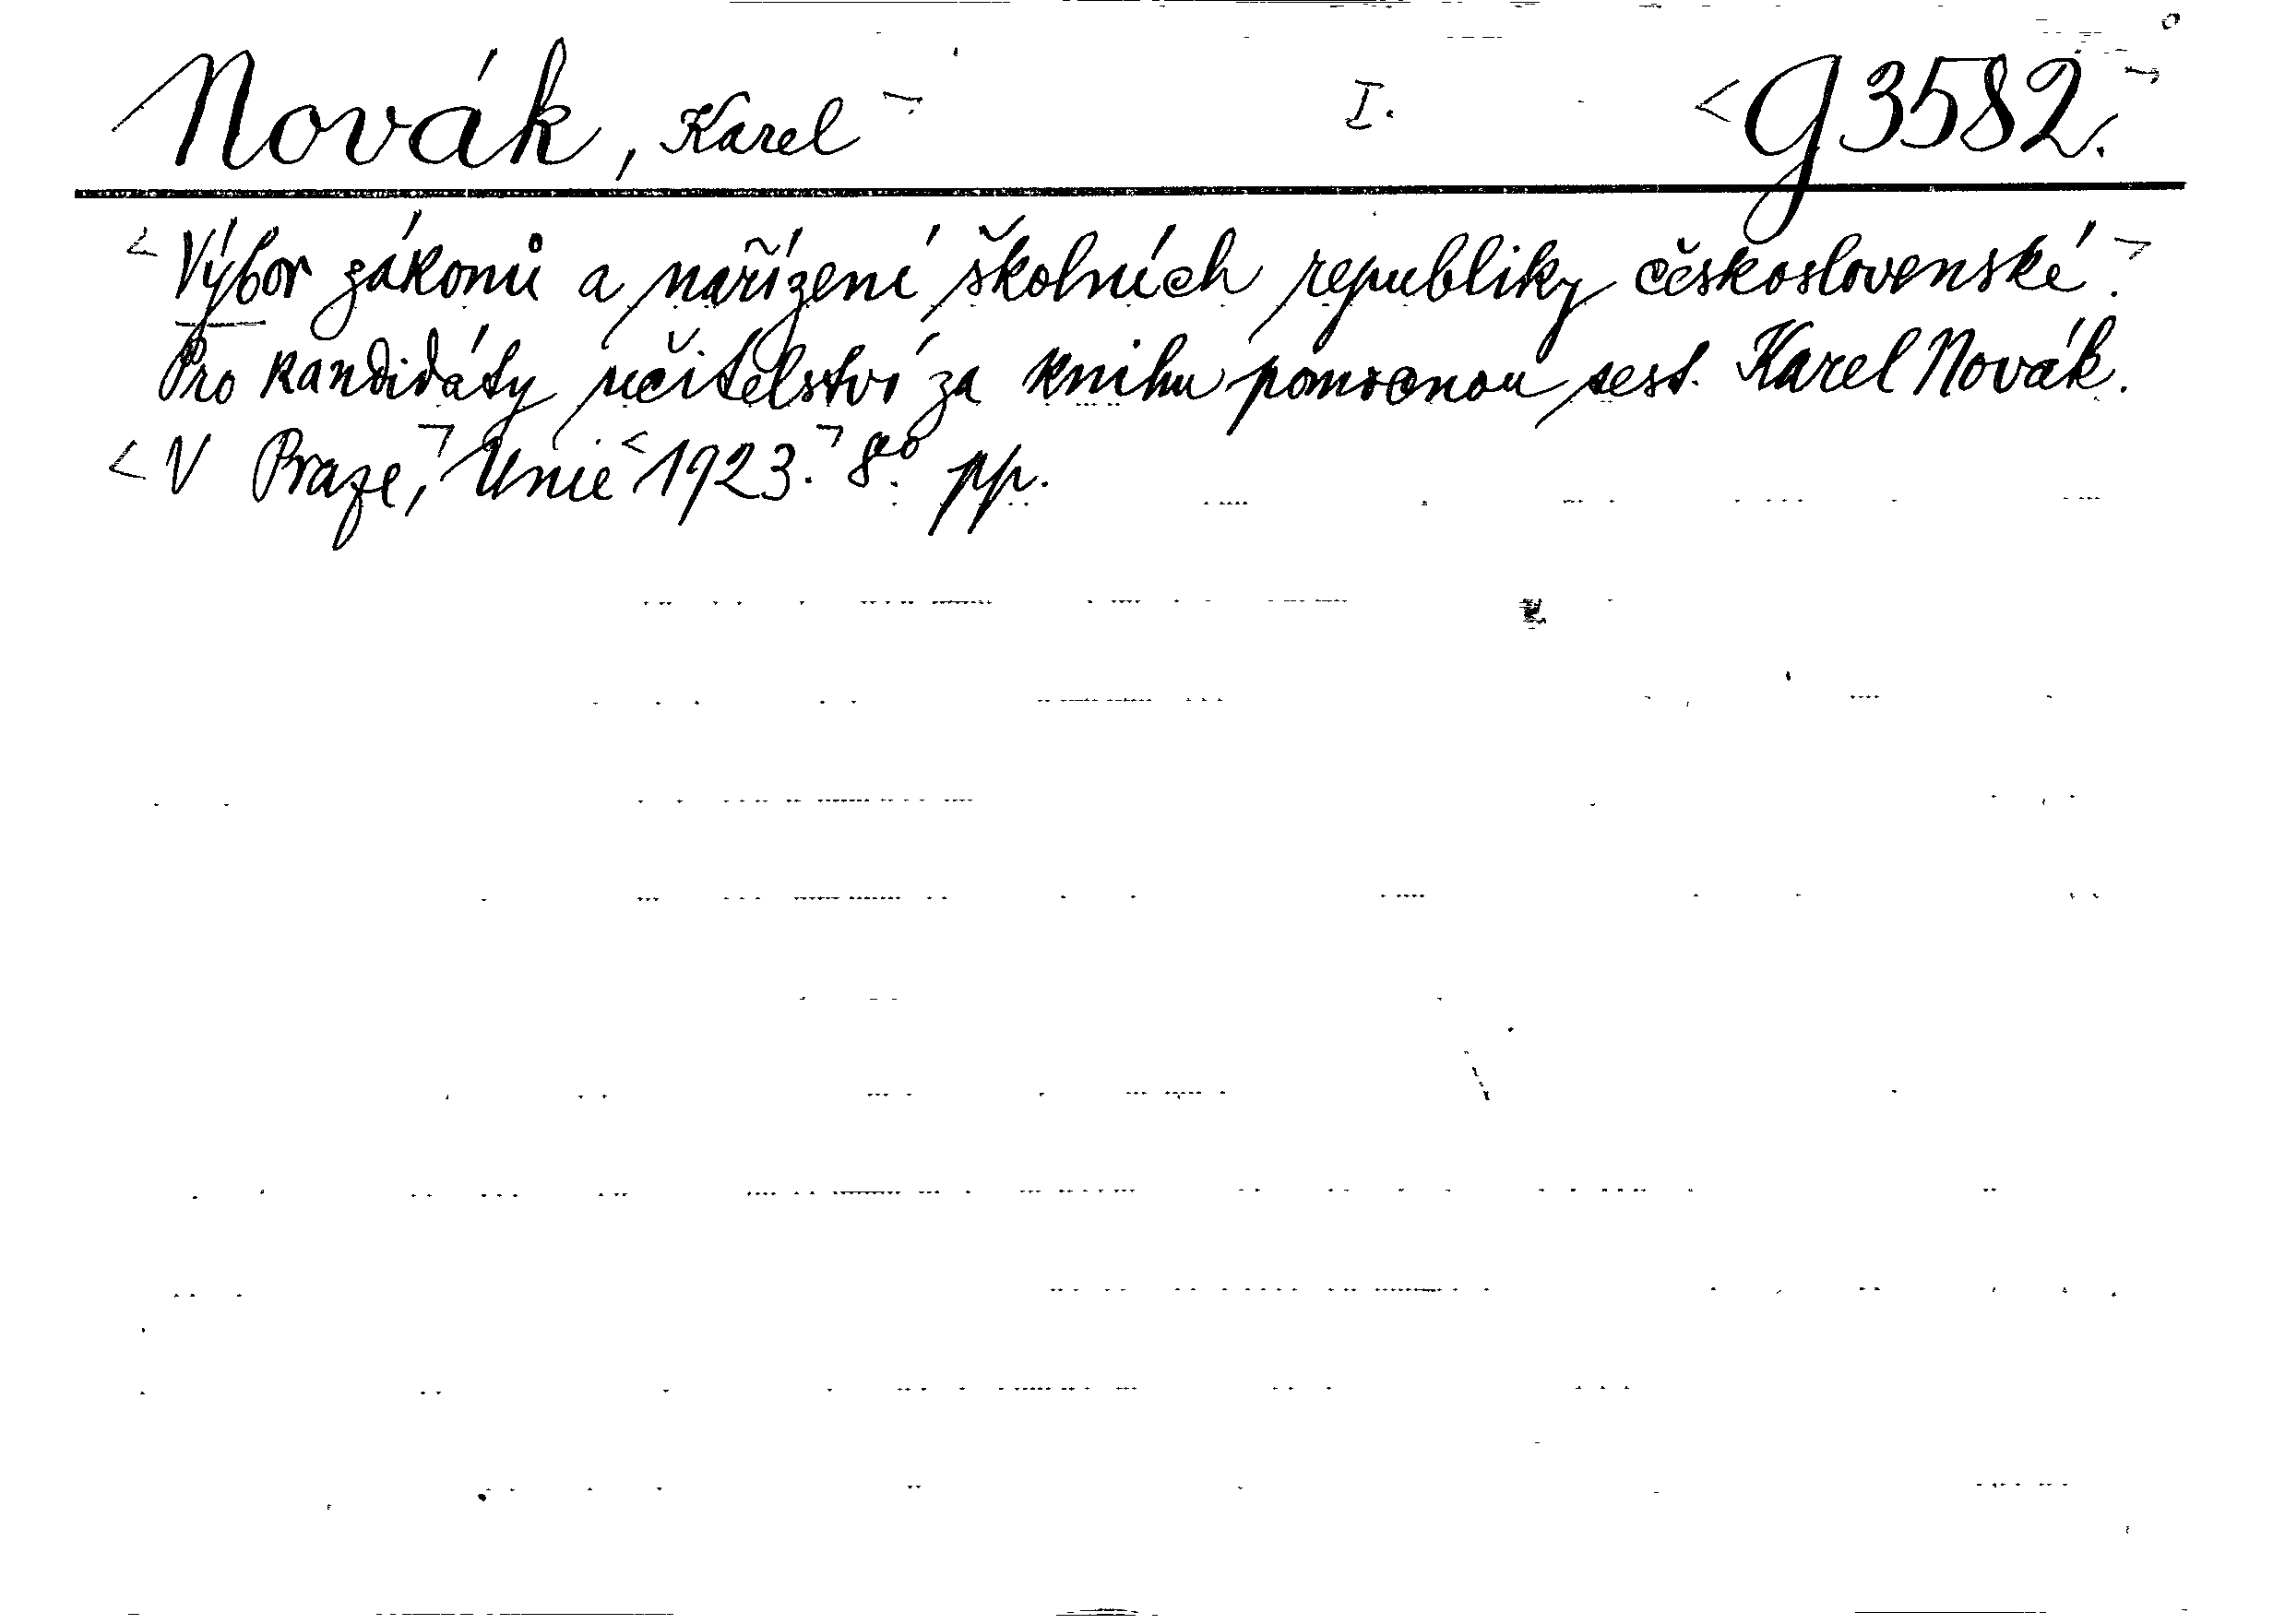 Novák, Karel I. G 3582.
Výbor zákonů a nařízení školních republiky československé.
Pro kandidáty učitelství za knihu pomocnou sest. Karel Novák.
V Praze, Unie 1923. 8º. pp.